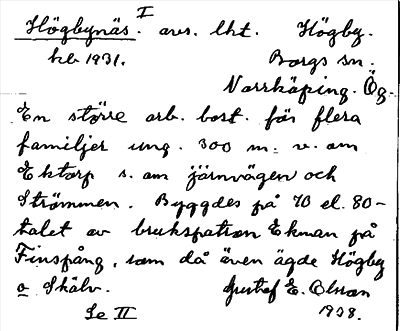 Högbynäs. I avs. lht. Högby.
hb 1931. Borgs sn.
Norrköping. Ög.
En större arb. bost. för flera
familjer ung. 300 m. v. om
Ektorp s. om järnvägen och
Strömmen. Byggdes på 70 el. 80-
talet av brukspatron Ekman på
Finspång, som då även ägde Högby
o Skälv. Gustaf E. Olsson
Se II 1938.